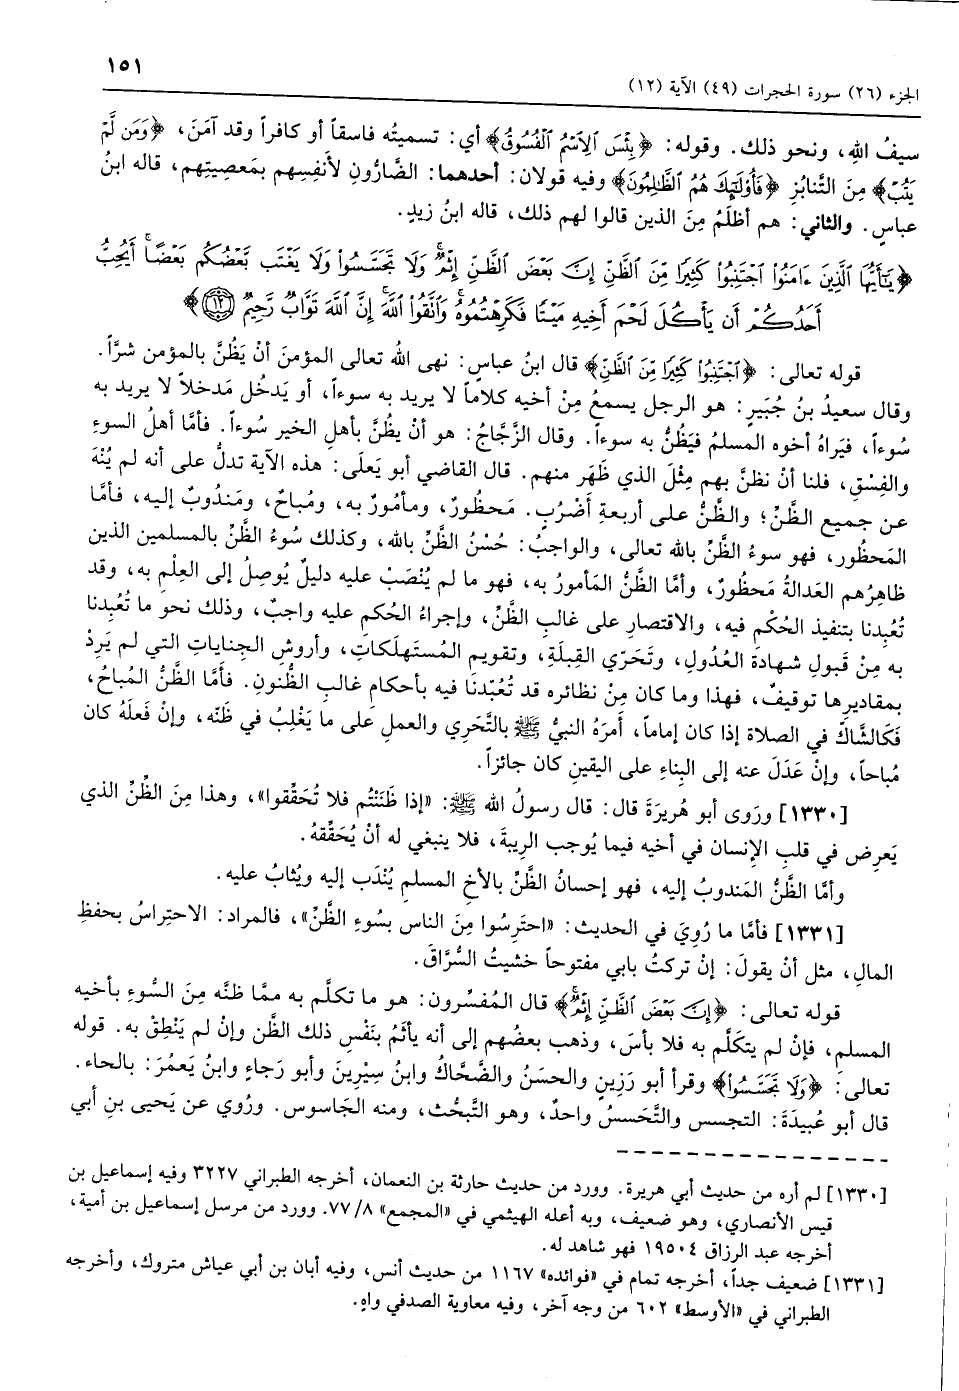 ١٥١
الجزء (٢٦) سورة الحجرات (٤٩) الآية (١٢)
سيفُ الله، ونحو ذلك. وقوله: ﴿بِئْسَ ٱلِٱسْمُ ٱلْفُسُوقُ﴾ أي: تسميتُه فاسقاً أو كافراً وقد آمَنَ، ﴿وَمَن لَّمْ
يَتُبْ﴾ مِنَ التَّنابُزِ ﴿فَأُوْلَٰٓئِكَ هُمُ ٱلظَّالِمُونَ﴾ وفيه قولان: أحدهما: الضَّارُّونِ لأَنفِسِهم بمَعصِيتِهم، قاله ابنُ
عباسٍ. والثاني: هم أظلَمُ مِنَ الذين قالوا لهم ذلك، قاله ابنُ زيدٍ.
﴿يَٰٓأَيُّهَا ٱلَّذِينَ ءَامَنُوا۟ ٱجْتَنِبُوا۟ كَثِيرًا مِّنَ ٱلظَّنِّ إِنَّ بَعْضَ ٱلظَّنِّ إِثْمٌ ۖ وَلَا تَجَسَّسُوا۟ وَلَا يَغْتَب بَّعْضُكُم بَعْضًا ۚ أَيُحِبُّ
أَحَدُكُمْ أَن يَأْكُلَ لَحْمَ أَخِيهِ مَيْتًا فَكَرِهْتُمُوهُ ۚ وَٱتَّقُوا۟ ٱللَّهَ ۚ إِنَّ ٱللَّهَ تَوَّابٌ رَّحِيمٌ ١٢﴾
قوله تعالى: ﴿ٱجْتَنِبُوا۟ كَثِيرًا مِّنَ ٱلظَّنِّ﴾ قال ابنُ عباسٍ: نهى اللهُ تعالى المؤمنَ أنْ يَظُنَّ بالمؤمن شرّاً.
وقال سعيدُ بنُ جُبَيرٍ: هو الرجل يسمعُ مِنْ أخيه كلاماً لا يريد به سوءاً، أو يَدخُل مَدخلاً لا يريد به
سُوءاً، فيَراهُ أخوه المسلمُ فيَظُنُّ به سوءاً. وقال الزَّجَّاجُ: هو أنْ يظُنَّ بأهلِ الخير سُوءاً. فأمَّا أهلُ السوءِ
والفِسْقِ، فلنا أنْ نظنَّ بهم مِثْلَ الذي ظَهَر منهم. قال القاضي أبو يَعلَى: هذه الآية تدلُّ على أنه لم يُنْهَ
عن جميع الظَّنِّ؛ والظَّنُّ على أربعةِ أَضْرُبٍ. مَحظُورٌ، ومأمُورٌ به، ومُباحٌ، ومَندُوبٌ إليه، فأمَّا
المَحظُور، فهو سوءُ الظَّنِّ بالله تعالى، والواجبُ: حُسْنُ الظَّنِّ بالله، وكذلك سُوءُ الظَّنِّ بالمسلمين الذين
ظاهِرُهم العَدالةُ مَحظُورٌ، وأمَّا الظَّنُّ المَأمورُ به، فهو ما لم يُنْصَبْ عليه دليلٌ يُوصِلُ إلى العِلْمِ به، وقد
تُعُبِدنا بتنفيذ الحُكْمِ فيه، والاقتصارِ على غالبِ الظَّنِّ، وإجراءُ الحُكمِ عليه واجبٌ، وذلك نحوُ ما تُعُبِدنا
به مِنْ قَبولِ شهادةِ العُدولِ، وتَحَرِّي القِبلَةِ، وتقويمِ المُستَهلَكاتِ، وأروشِ الجِناياتِ التي لم يَرِدْ
بمقاديرِها توقيفٌ، فهذا وما كان مِنْ نظائره قد تُعُبِّدنا فيه بأحكامِ غالبِ الظُّنونِ. فأمَّا الظَّنُّ المُباحُ،
فَكَالشَّاكِّ في الصلاة إذا كان إماماً، أَمَرَهُ النبيُّ ﷺ بالتَّحَرِي والعملِ على ما يَغْلِبُ في ظَنّه، وإنْ فَعلَهُ كان
مُباحاً، وإنْ عَدَلَ عنه إلى البِناءِ على اليقينِ كان جائزاً.
[١٣٣٠] ورَوى أبو هُريرَةَ قال: قال رسولُ الله ﷺ: «إذا ظَنَنْتُم فلا تُحَقِّقوا»، وهذا مِنَ الظِّنِّ الذي
يَعرِض في قلبِ الإنسان في أخيه فيما يُوجب الرِيبةَ، فلا ينبغي له أنْ يُحَقِّقهُ.
وأمَّا الظَّنُّ المَندوبُ إليه، فهو إحسانُ الظَّنِّ بالأخِ المسلمِ يُنْدَب إليه ويُثابُ عليه.
[١٣٣١] فأمَّا ما رُوِيَ في الحديث: «احترِسُوا مِنَ الناس بسُوءِ الظَّنِّ»، فالمراد: الاحتِراسُ بحفظِ
المالِ، مثل أنْ يقولَ: إنْ تركتُ بابي مفتوحاً خشيتُ السُّرَّاقَ.
قوله تعالى: ﴿إِنَّ بَعْضَ ٱلظَّنِّ إِثْمٌ ۖ﴾ قال المُفسِّرون: هو ما تكلَّم به ممَّا ظنَّه مِنَ السُّوءِ بأخيه
المسلم، فإنْ لم يتكَلَّم به فلا بأسَ، وذهب بعضُهم إلى أنه يأثَمُ بنَفْسِ ذلك الظَّن وإنْ لم يَنْطِقْ به. قوله
تعالى: ﴿وَلَا تَجَسَّسُوا۟﴾ وقرأ أبو رَزِينٍ والحسَنُ والضَّحَّاكُ وابنُ سِيْرِينَ وأبو رَجاءٍ وابنُ يَعمُرَ: بالحاء.
قال أبو عُبيدَةَ: التجسس والتَّحَسسُ واحدٌ، وهو التَّبحُّث، ومنه الجَاسوس. ورُوي عن يَحيى بنِ أبي
[١٣٣٠] لم أره من حديث أبي هريرة. وورد من حديث حارثة بن النعمان، أخرجه الطبراني ٣٢٢٧ وفيه إسماعيل بن
قيس الأنصاري، وهو ضعيف، وبه أعله الهيثمي في «المجمع» ٧٧/٨. وورد من مرسل إسماعيل بن أمية،
أخرجه عبد الرزاق ١٩٥٠٤ فهو شاهد له.
[١٣٣١] ضعيف جداً، أخرجه تمام في «فوائده» ١١٦٧ من حديث أنس، وفيه أبان بن أبي عياش متروك، وأخرجه
الطبراني في «الأوسط» ٦٠٢ من وجه آخر، وفيه معاوية الصدفي واهٍ.